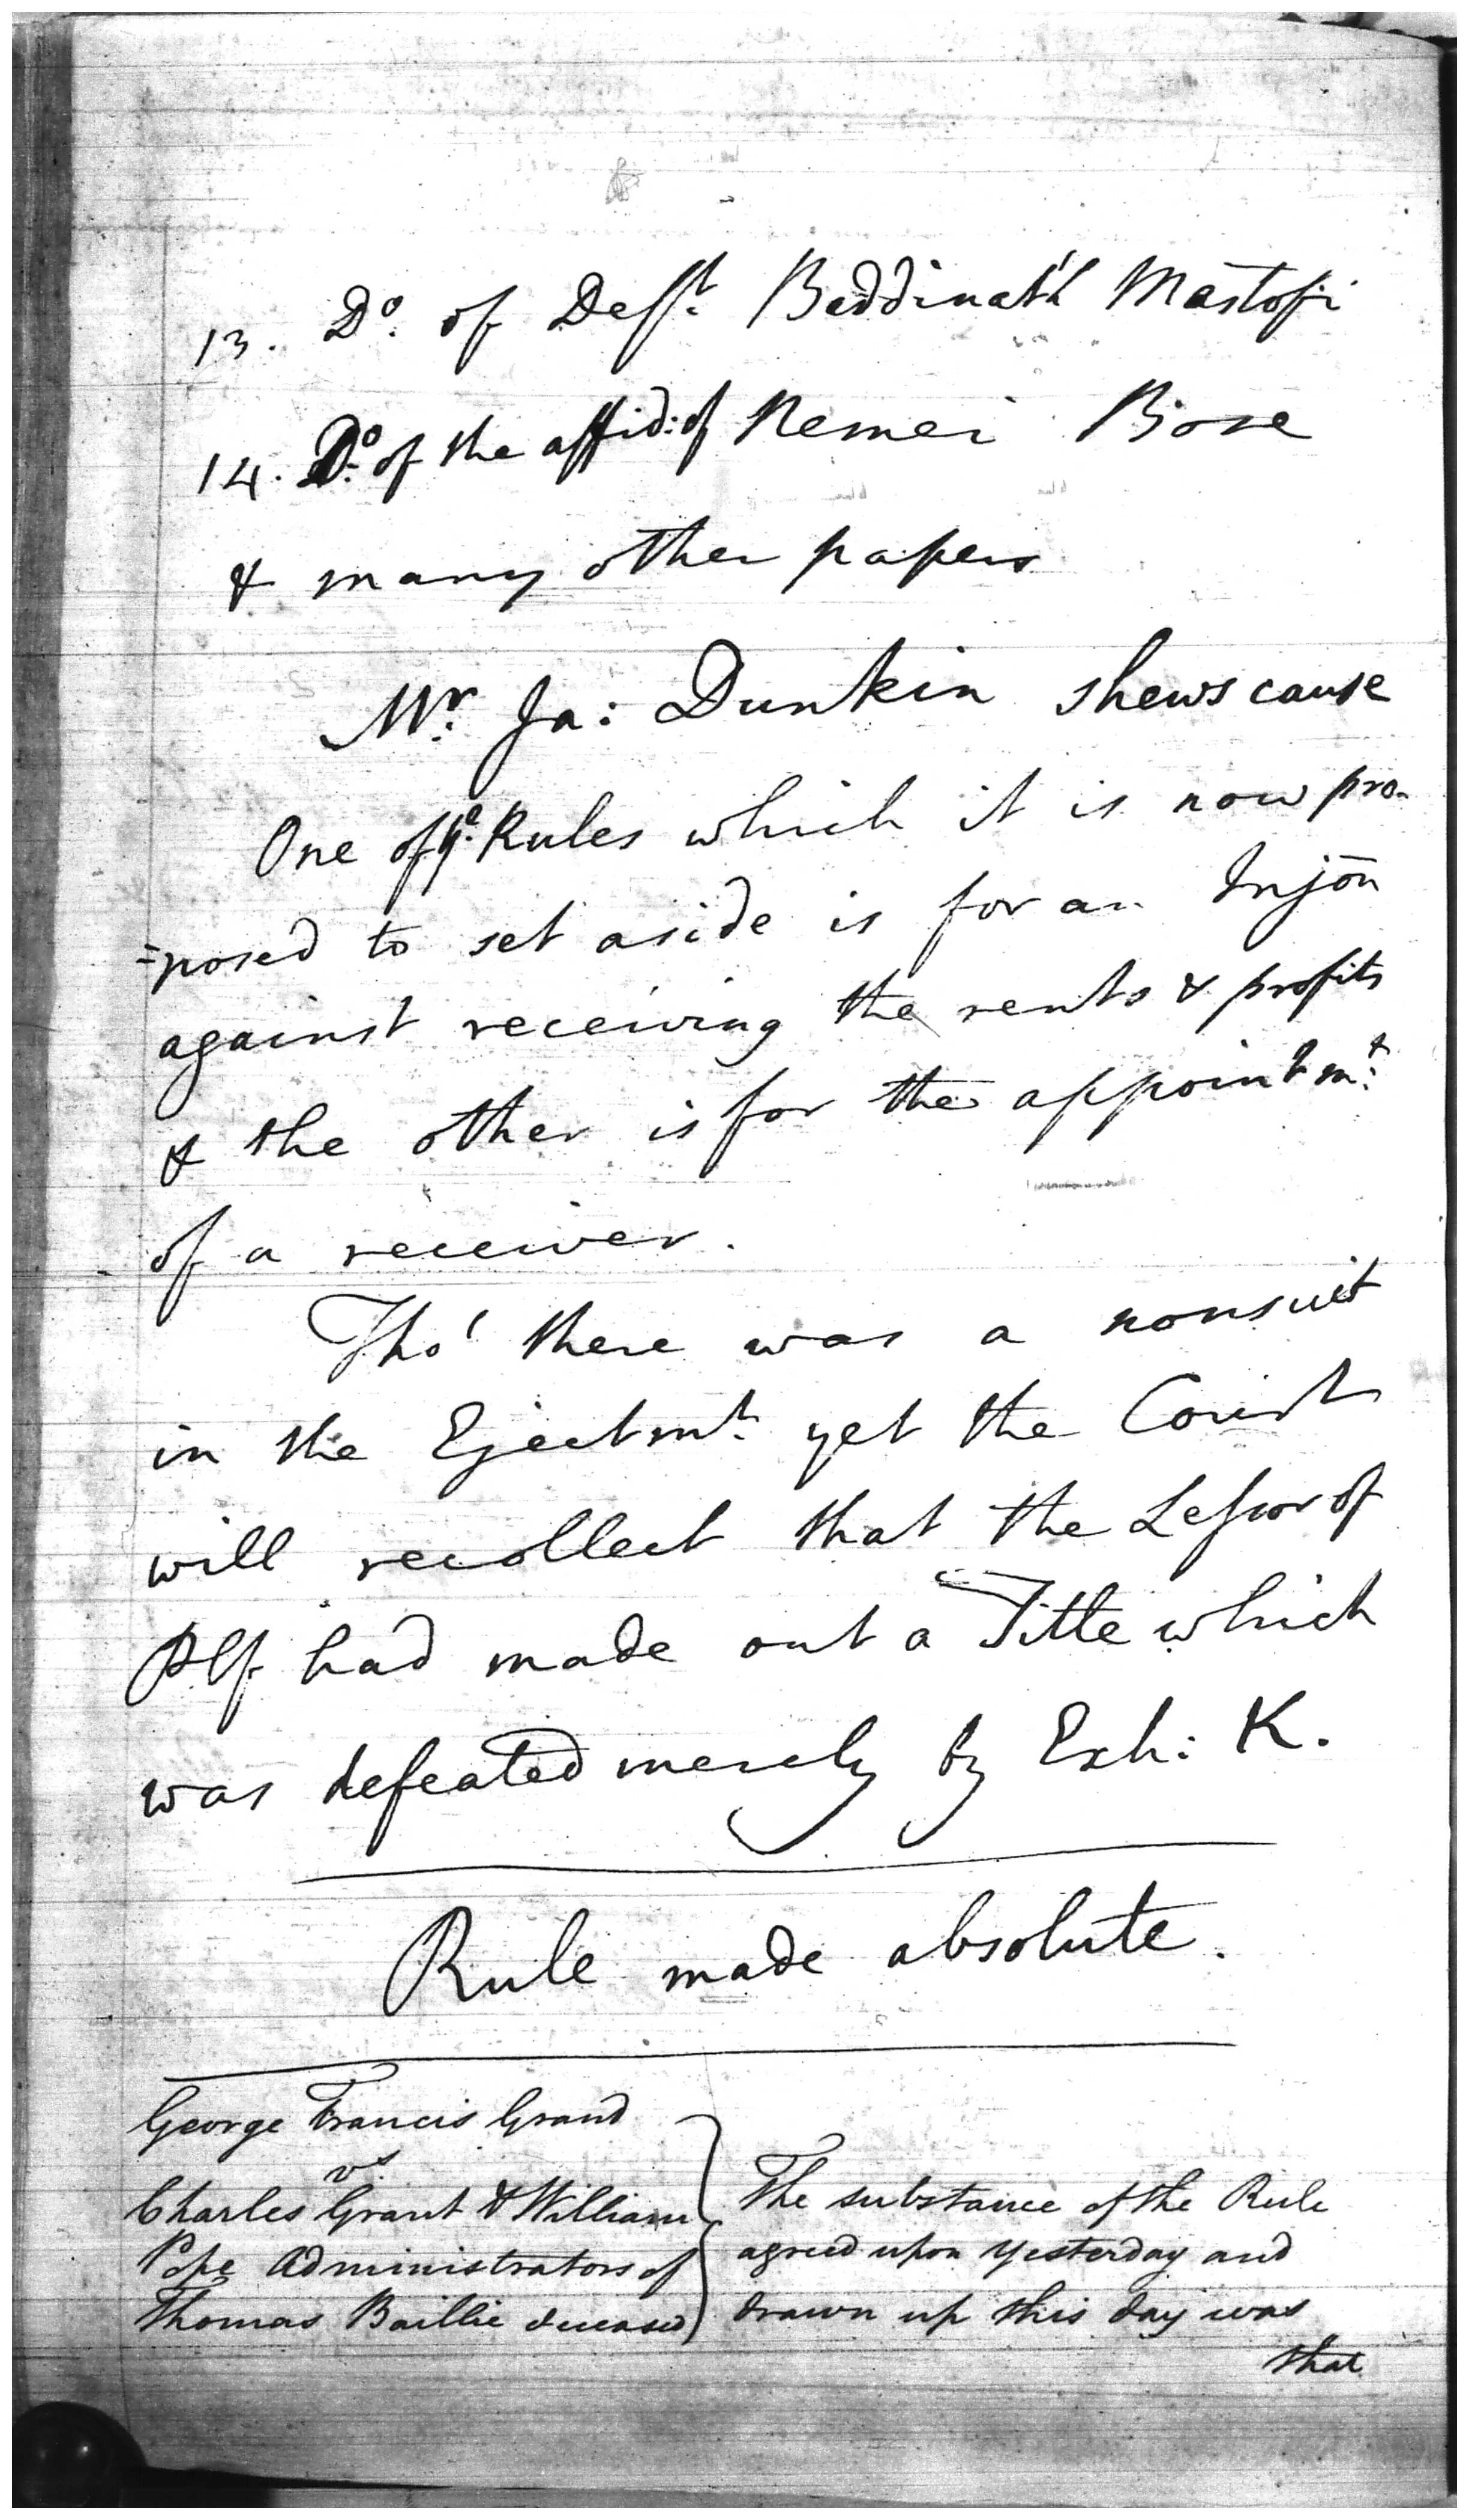 13. Do. of Deft. Beddinath Mastofi
14. Do. of the affid: of Nemei Bose
& many other papers
Mr. Ja: Dunkin shews cause
One of ye. Rules which it is now pro-
-posed to set aside is for an Injōn
against receiving the rents & profits
& the other is for the appointmt.
of a receiver.
Tho' there was a nonsuit
in the Ejectmt. yet the Court
will recollect that the Lessor of
Plf had made out a Title which
was defeated merely by Exh: K.
Rule made absolute.
George Francis Grand
vs
Charles Grant & William
Pope Administrators of
Thomas Baillie deceased
The substance of the Rule
agreed upon yesterday and
drawn up this day was
that